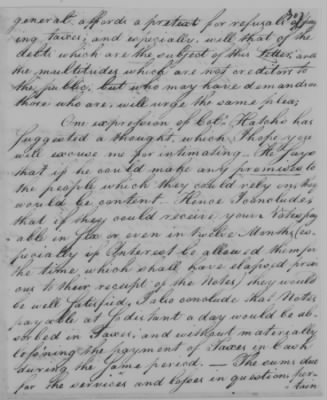 general affords a pretext for refusals of pay
ing taxes; and especially will that of the
debts which are the subject of this Letter; and
the multitudes which are not creditors to
the public, but who may have demands on
those who are, will urge the same plea;
One expression of Col: Hatchs has
suggested a thought, which I hope you
will excuse me for intimating. He says
that if he could make any promises to
the people which they could rely on, they
would be content. Hence I conclude
that if they could receive your Notes pay
able in six or even in twelve Months, es
pecially if Interest be allowed them for
the time which shall have elapsed previ
ous to their receipt of the Notes, they would
be well satisfied; I also conclude that Notes
payable at so distant a day would be ab
sorbed in Taxes; and without materially
lessening the payment of Taxes in Cash
during the same period. — The sums due
for the services and losses in question, per-
tain